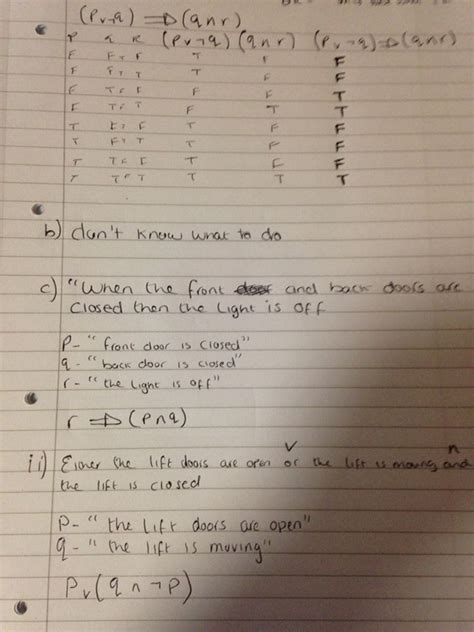 (P∨¬q) ⇒ (q∧r)
P q R (P∨¬q) (q∧r) (P∨¬q)⇒(q∧r)
F F T F T F F
F F T T T F F
F T F F F F T
F T F T F T T
T F T F T F F
T F T T T F F
T T F F T F F
T T F T T T T
b) don't know what to do
c) "When the front door and back doors are
closed then the light is off
P- "front door is closed"
q- "back door is closed"
r- "the light is off"
r ⇒ (p∧q)
ii) Either the lift doors are open or the lift is moving and
∨ ∧
the lift is closed
P- "the lift doors are open"
q- "the lift is moving"
P∨(q∧¬p)